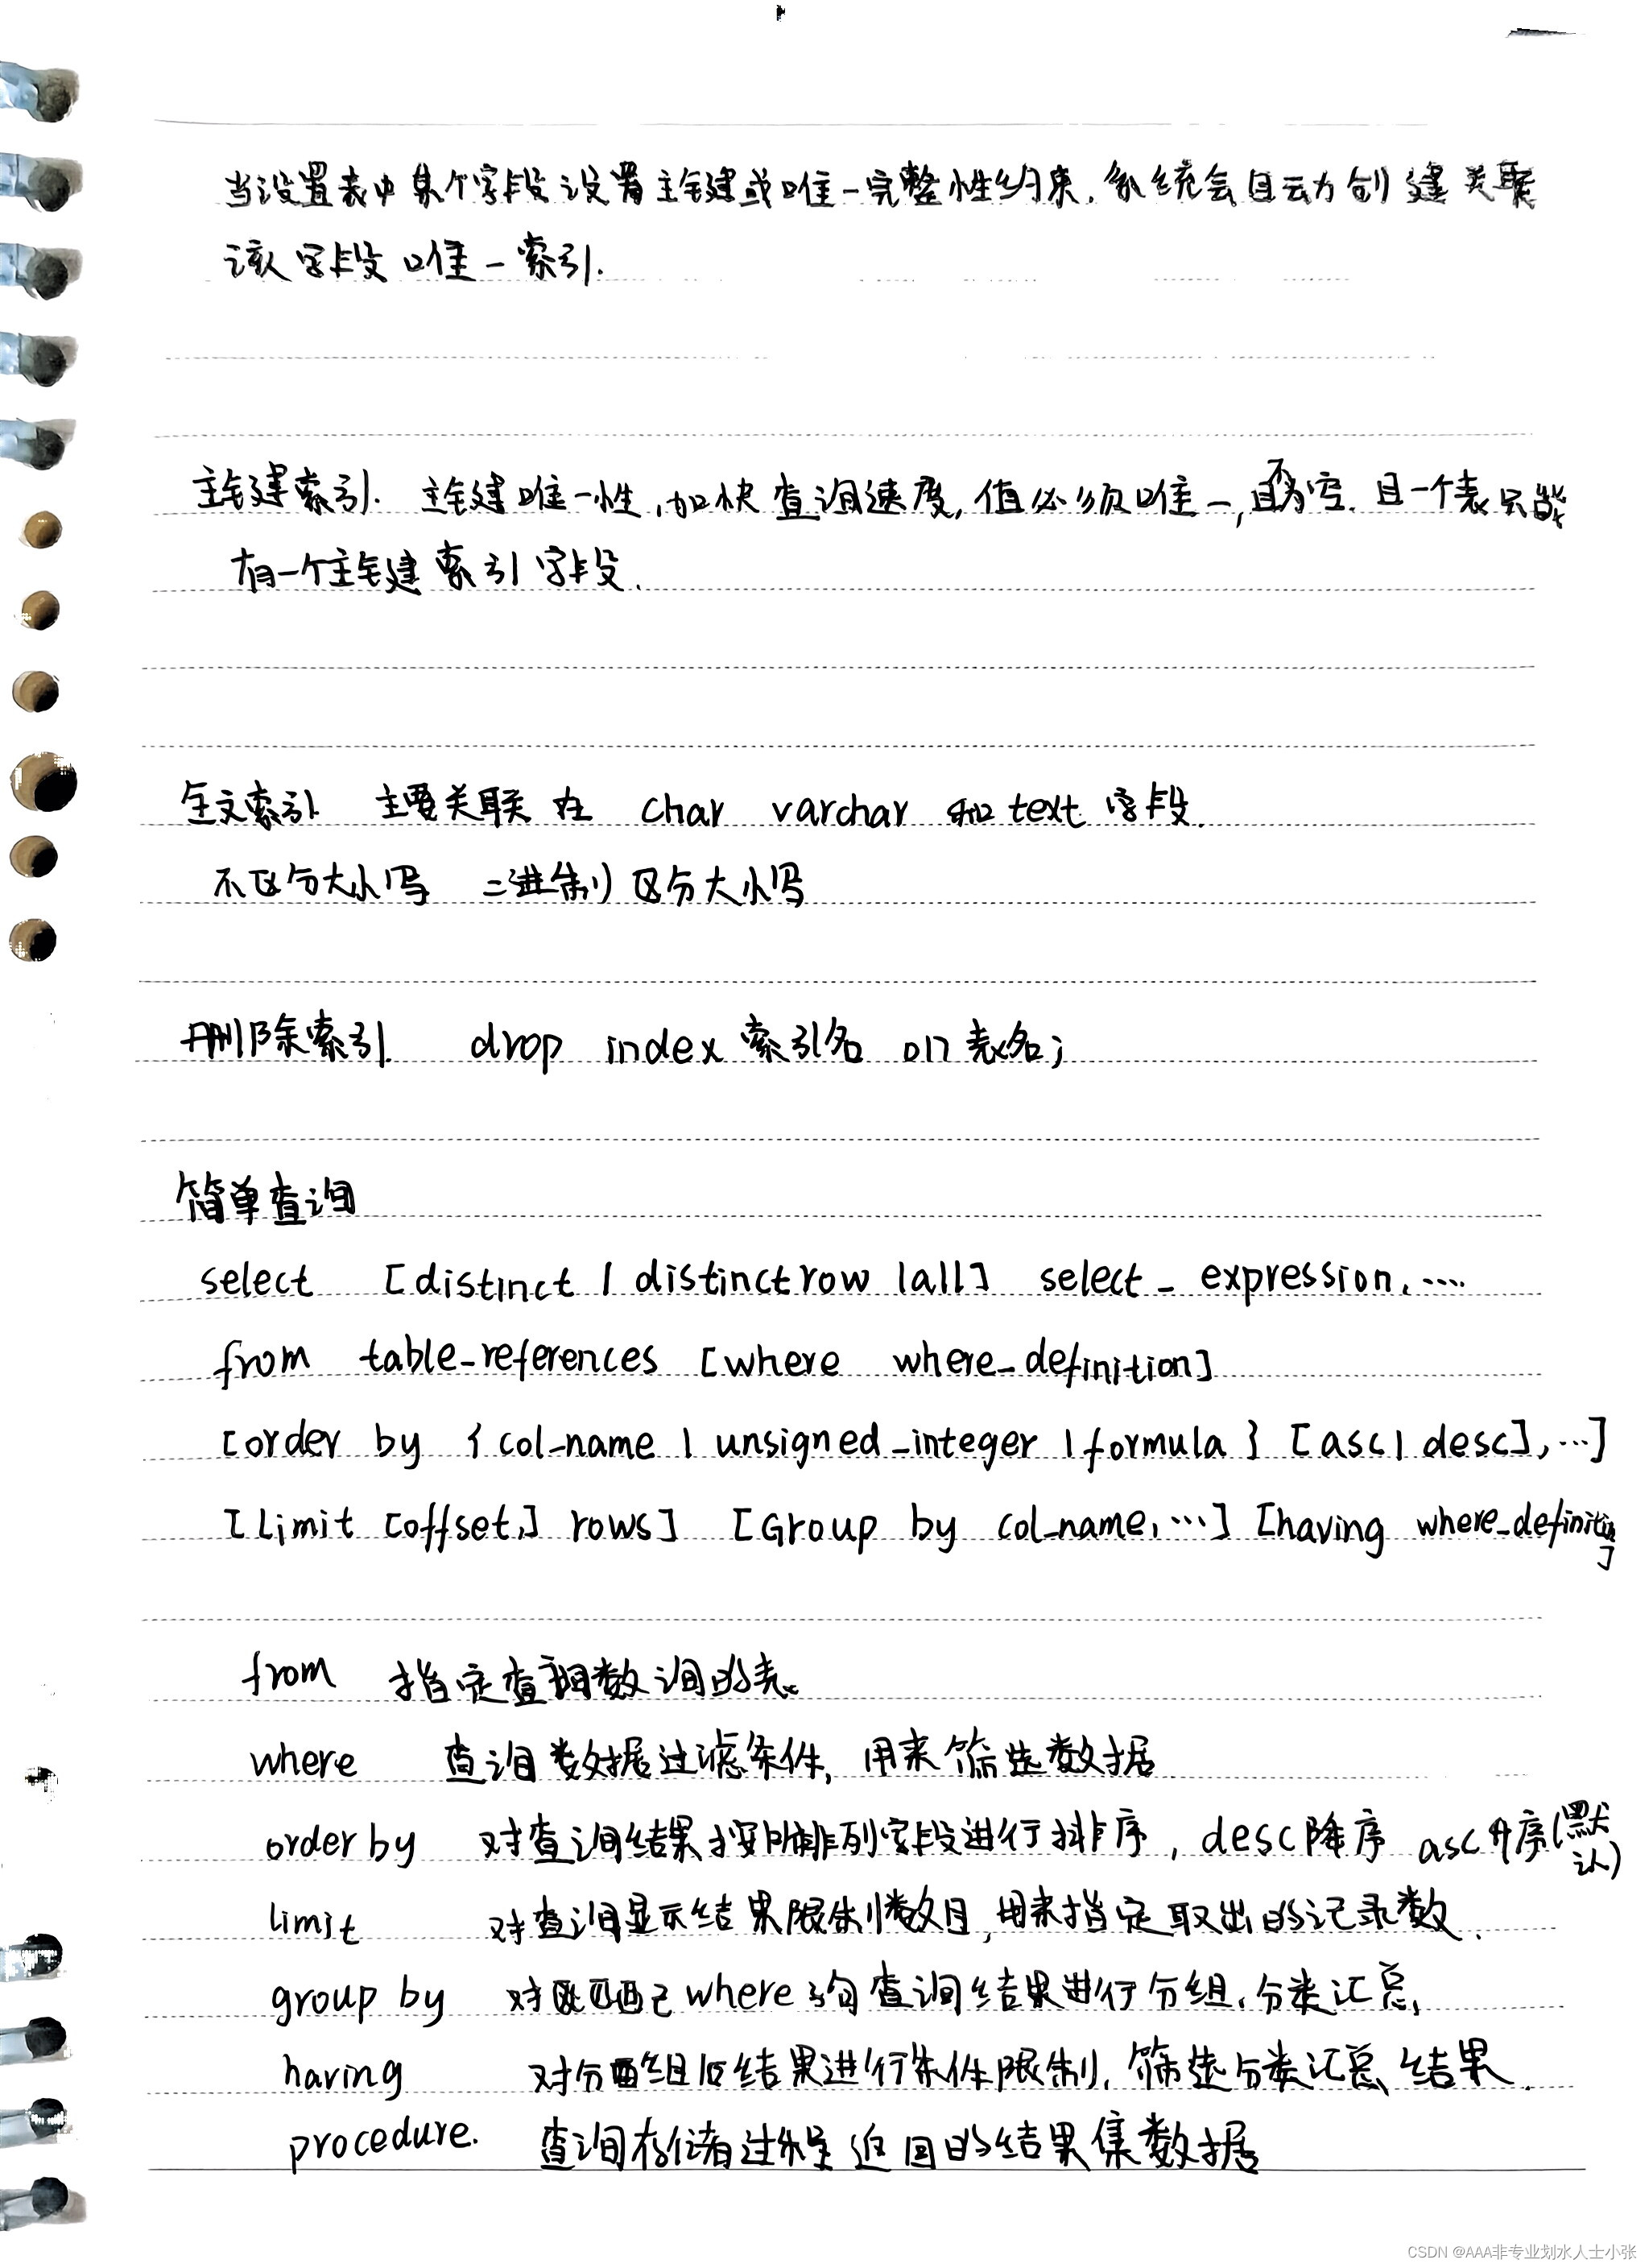 当设置表中某个字段设置主键或唯一完整性约束.系统会自动创建关联
该字段唯一索引.
主键索引. 主键唯一性,加快查询速度,值必须唯一,且不为空.且一个表只能
有一个主键索引字段.
全文索引 主要关联在 char varchar 和text 字段.
不区分大小写 二进制区分大小写
删除索引 drop index 索引名 on 表名;
简单查询
select [distinct | distinctrow |all] select_expression,....
from table_references [where where_definition]
[order by {col_name | unsigned_integer |formula } [asc| desc],...]
[Limit [offset,] rows] [Group by col_name,...] [having where_definition]
from 指定查询数询的表。
where 查询数据过滤条件,用来筛选数据
order by 对查询结果按所排列字段进行排序,desc降序 asc升序(默认)
limit 对查询显示结果限制数目,用来指定取出的记录数.
group by 对匹配where子句查询结果进行分组,分类汇总,
having 对分组后结果进行条件限制,筛选分类汇总结果.
procedure. 查询存储过程返回的结果集数据
CSDN @AAA非专业划水人士小张